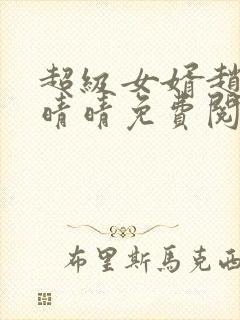 超級女婿趙
晴晴免費閱
布里斯馬克西